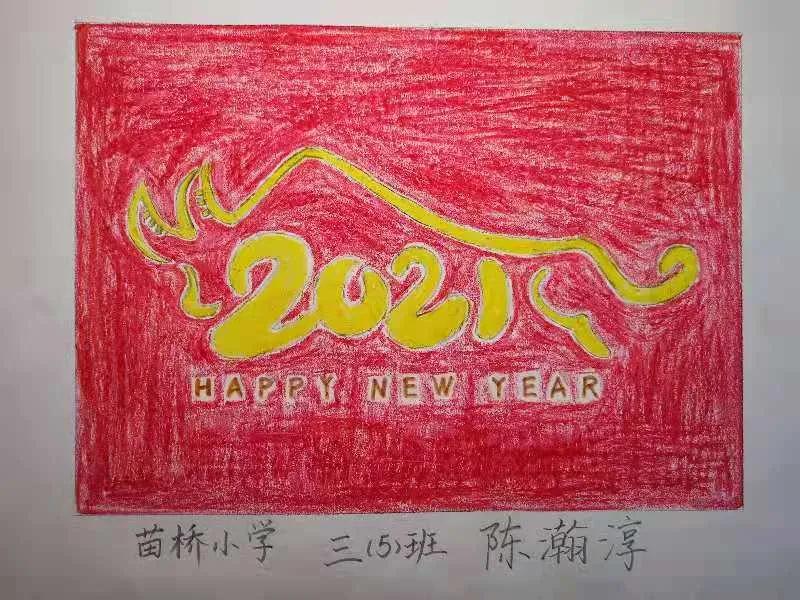 2021
HAPPY NEW YEAR
苗桥小学 三(5)班 陈瀚淳